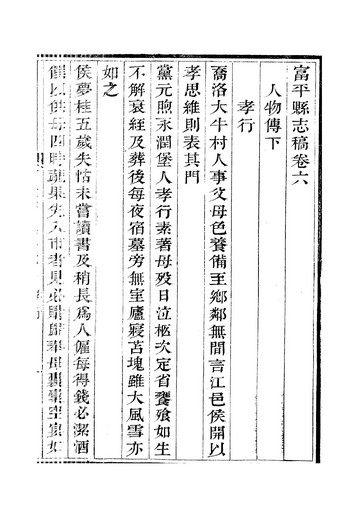 富平縣志稿卷六
人物傳下
孝行
喬洛大牛村人事父母色養備至鄉鄰無間言江邑侯開以
孝思維則表其門
黨元煦永潤堡人孝行素著母歿日泣柩次定省饔飧如生
不解衰絰及葬後每夜宿墓旁無室廬寢苫塊雖大風雪亦
如之
侯夢桂五歲失怙未嘗讀書及稍長爲人僱每得錢必潔酒
饌以供母四時蔬果先入市者見必購歸奉母囊橐空宴如